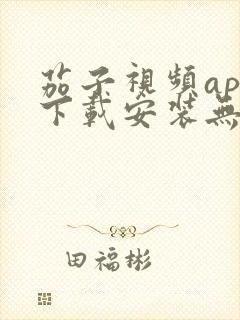 茄子視頻ap
下載安装無
田福彬